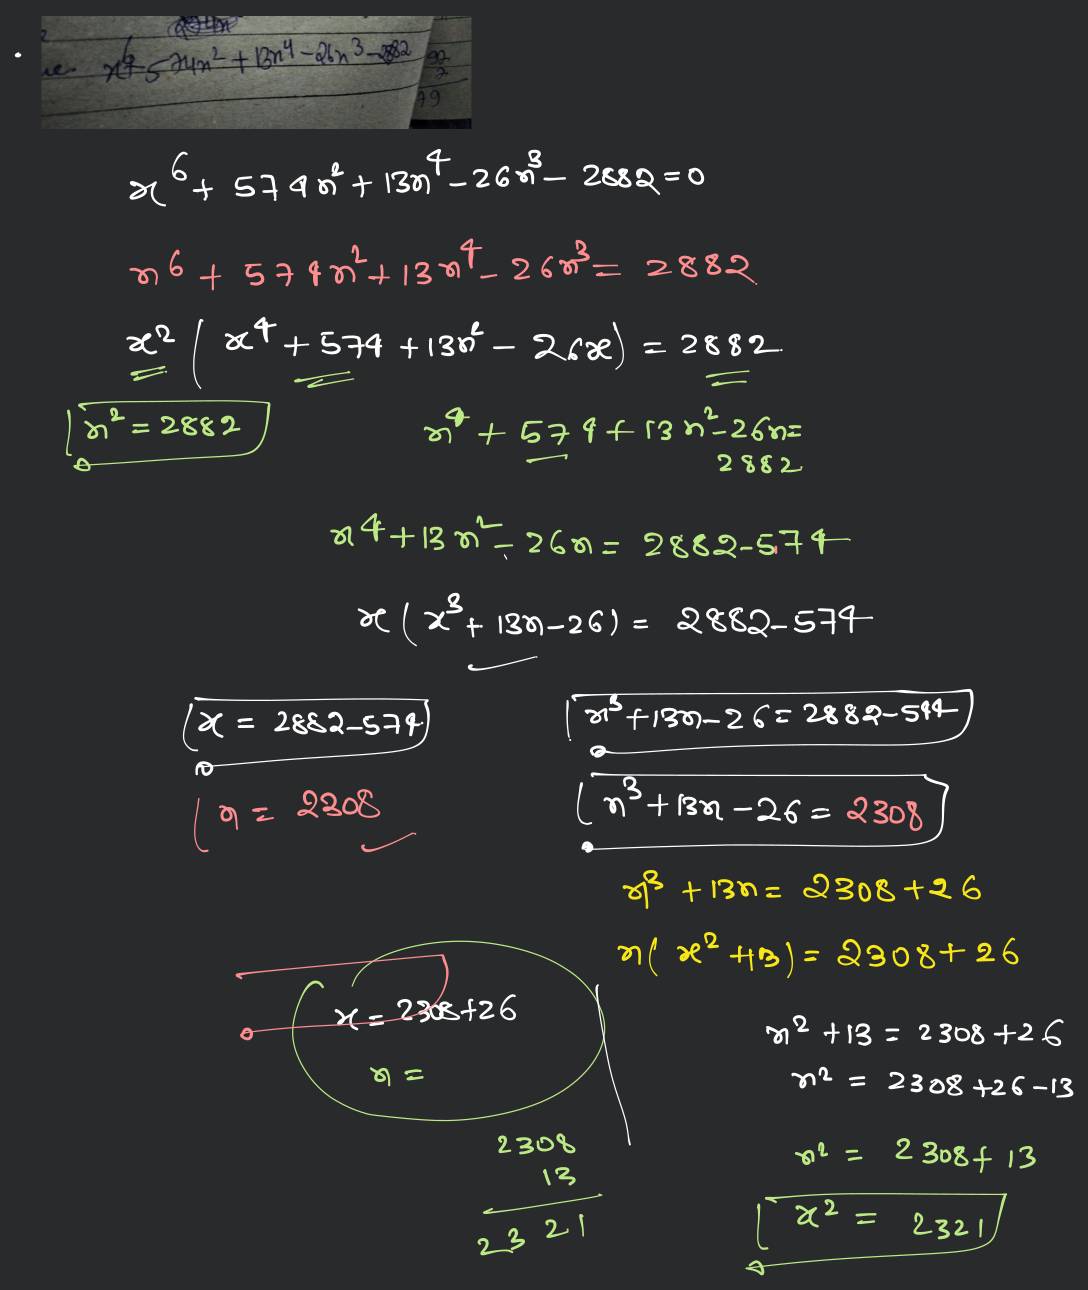 x⁶ + 574x² + 13x⁴ - 26x³ - 2882
92
7
79
x⁶ + 574x² + 13x⁴ - 26x³ - 2882 = 0
x⁶ + 574x² + 13x⁴ - 26x³ = 2882
x² ( x⁴ + 574 + 13x² - 26x ) = 2882
x² = 2882
x⁴ + 574 + 13x² - 26x =
2882
x⁴ + 13x² - 26x = 2882 - 574
x ( x³ + 13x - 26 ) = 2882 - 574
x = 2882 - 574
x³ + 13x - 26 = 2882 - 574
x = 2308
x³ + 13x - 26 = 2308
x³ + 13x = 2308 + 26
x ( x² + 13 ) = 2308 + 26
x = 2308 + 26
x² + 13 = 2308 + 26
x =
x² = 2308 + 26 - 13
2308
13
2321
x² = 2308 + 13
x² = 2321